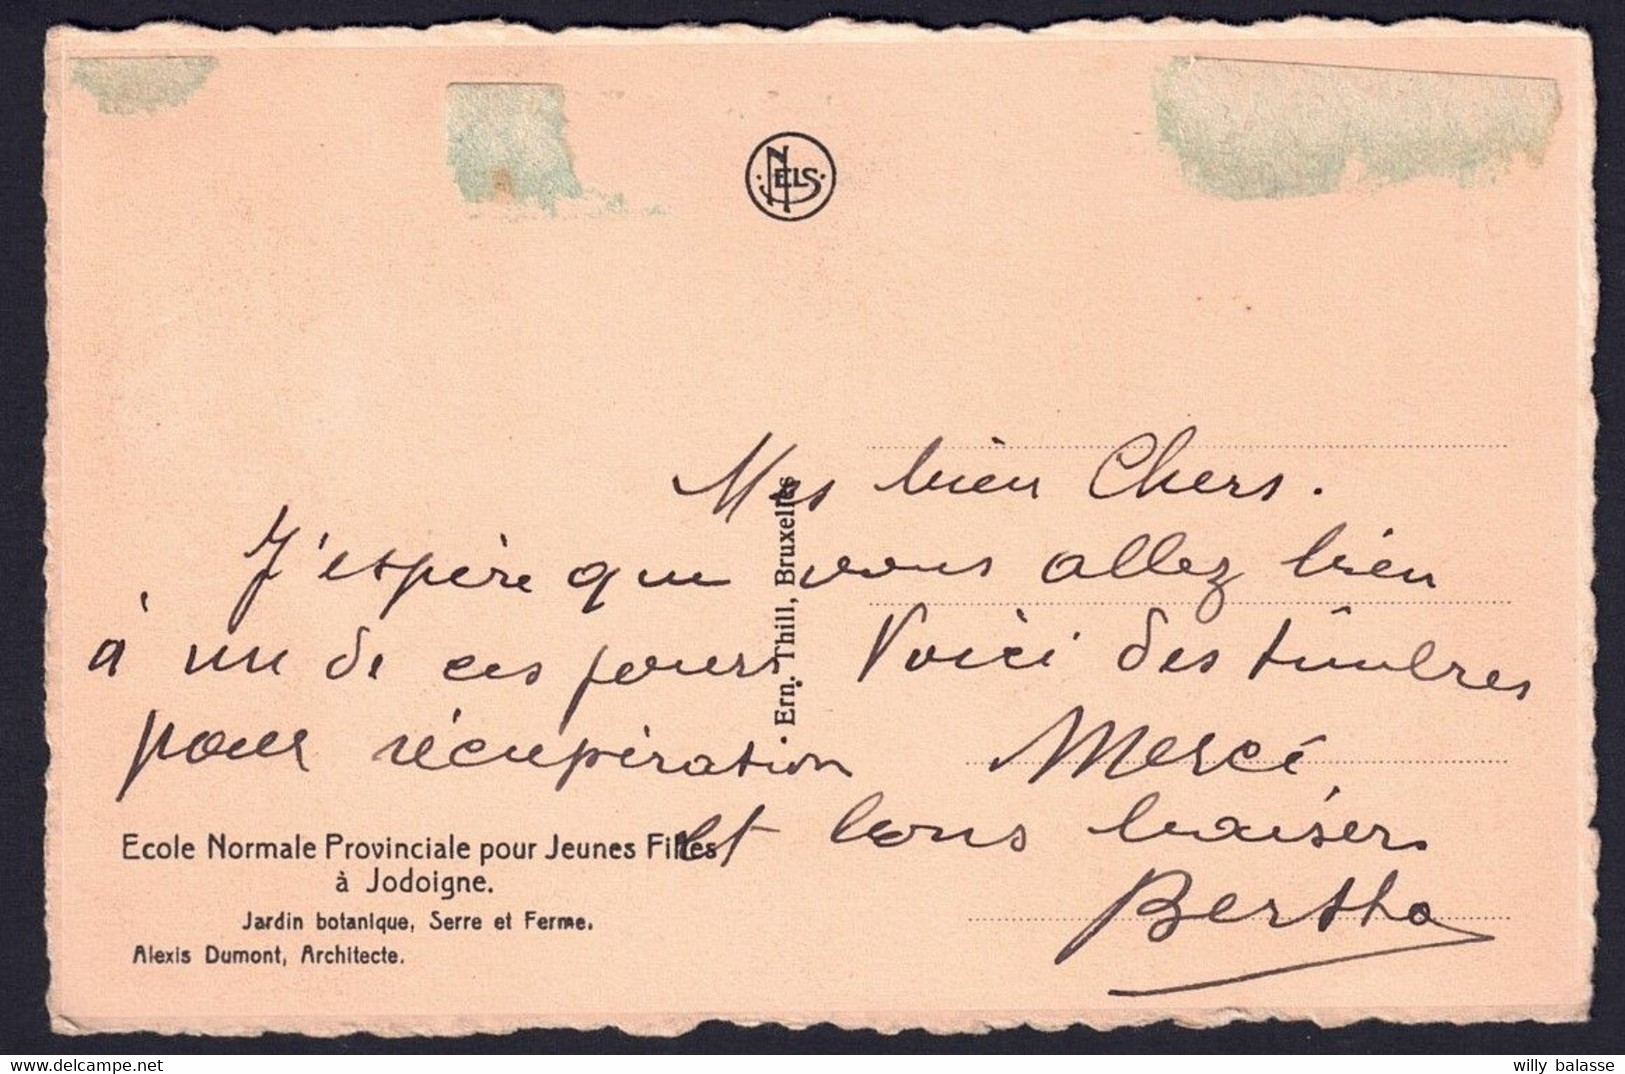 NELS
Mes bien Chers.
J'espère que vous allez bien
à un de ces jours Voici des timbres
pour récupération Merci
et bons baisers
Bertha
Ern. Thill, Bruxelles
Ecole Normale Provinciale pour Jeunes Filles
à Jodoigne.
Jardin botanique, Serre et Ferme.
Alexis Dumont, Architecte.
willy balasse